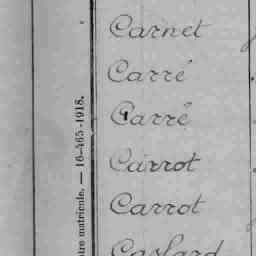 Carnet
Carré
Carré
Carrot
Carrot
matricule. — 16-465-1918.